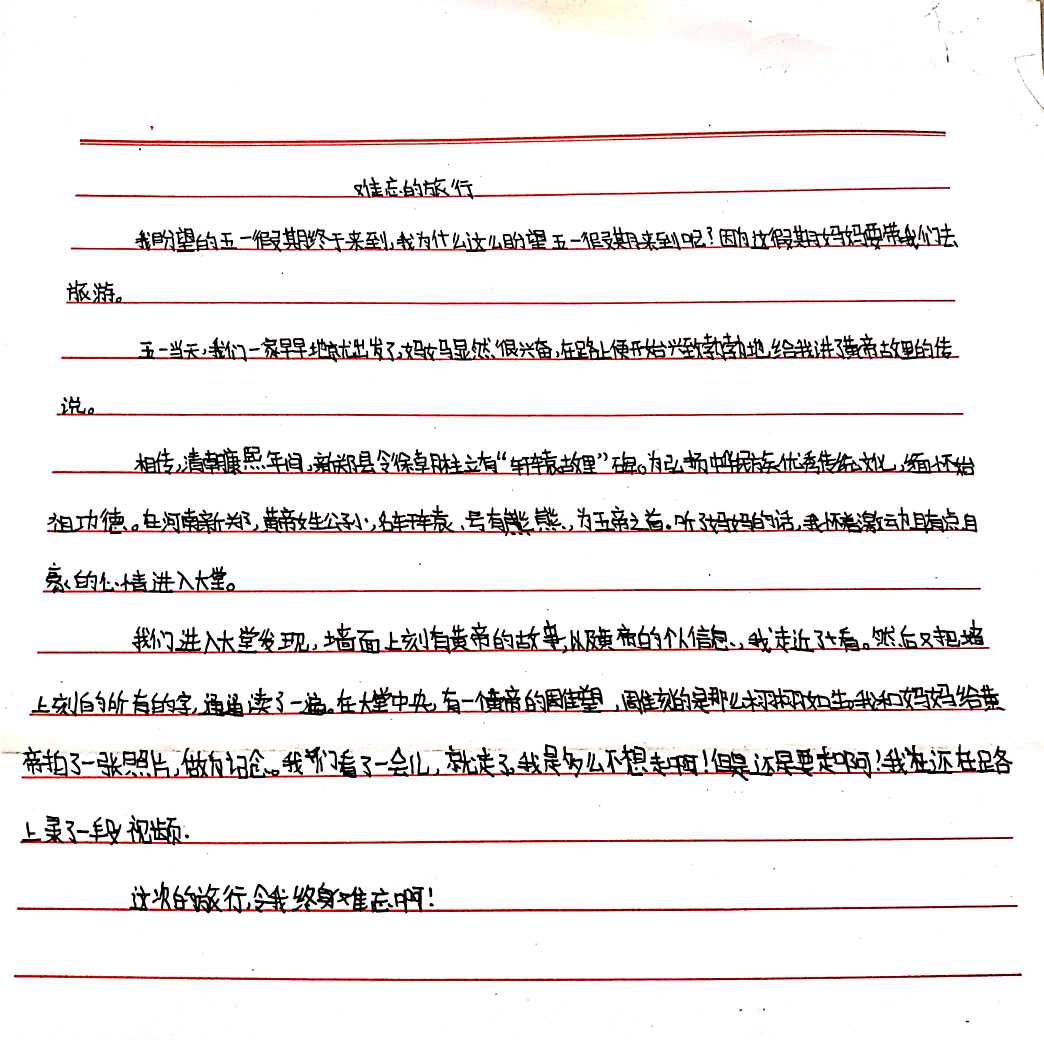 难忘的旅行
我盼望的五一假期终于来到,我为什么这么盼望五一假期来到呢?因为这假期妈妈要带我们去
旅游。
五一当天,我们一家早早地就出发了,妈妈显然很兴奋,在路上便开始兴致勃勃地,给我讲了黄帝故里的传
说。
相传,清朝康熙年间,新郑县令徐卓胜立有“轩辕故里”碑。为弘扬中华民族优秀传统文化,缅怀始
祖功德。在河南新郑,黄帝姓公孙,名轩辕、号有熊,为五帝之首。听了妈妈的话,我怀着激动且有点自
豪的心情进入大堂。
我们进入大堂发现,墙面上刻有黄帝的故事,以及黄帝的个人信息,我走近了看。然后又把墙
上刻的所有的字,通通读了一遍。在大堂中央,有一个黄帝的雕塑,雕刻的是那么栩栩如生。我和妈妈给黄
帝拍了一张照片,做为记念。我们看了一会儿,就走了。我是多么不想走啊!但是还是要走啊!我还在路
上录了一段视频.
这次的旅行,令我终身难忘啊!